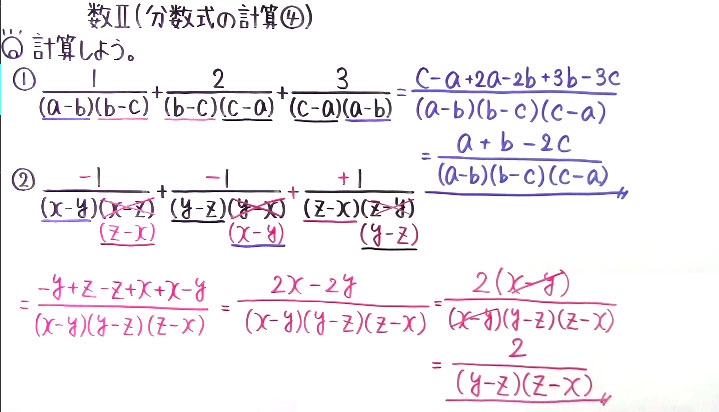 数Ⅱ(分数式の計算④)
計算しよう。
① 1/((a-b)(b-c)) + 2/((b-c)(c-a)) + 3/((c-a)(a-b)) = (c-a+2a-2b+3b-3c)/((a-b)(b-c)(c-a))
= (a+b-2c)/((a-b)(b-c)(c-a))
② -1/((x-y)(x-z)) + -1/((y-z)(y-x)) + +1/((z-x)(z-y))
(z-x) (x-y) (y-z)
= (-y+z-z+x+x-y)/((x-y)(y-z)(z-x)) = (2x-2y)/((x-y)(y-z)(z-x)) = 2(x-y)/((x-y)(y-z)(z-x))
= 2/((y-z)(z-x))